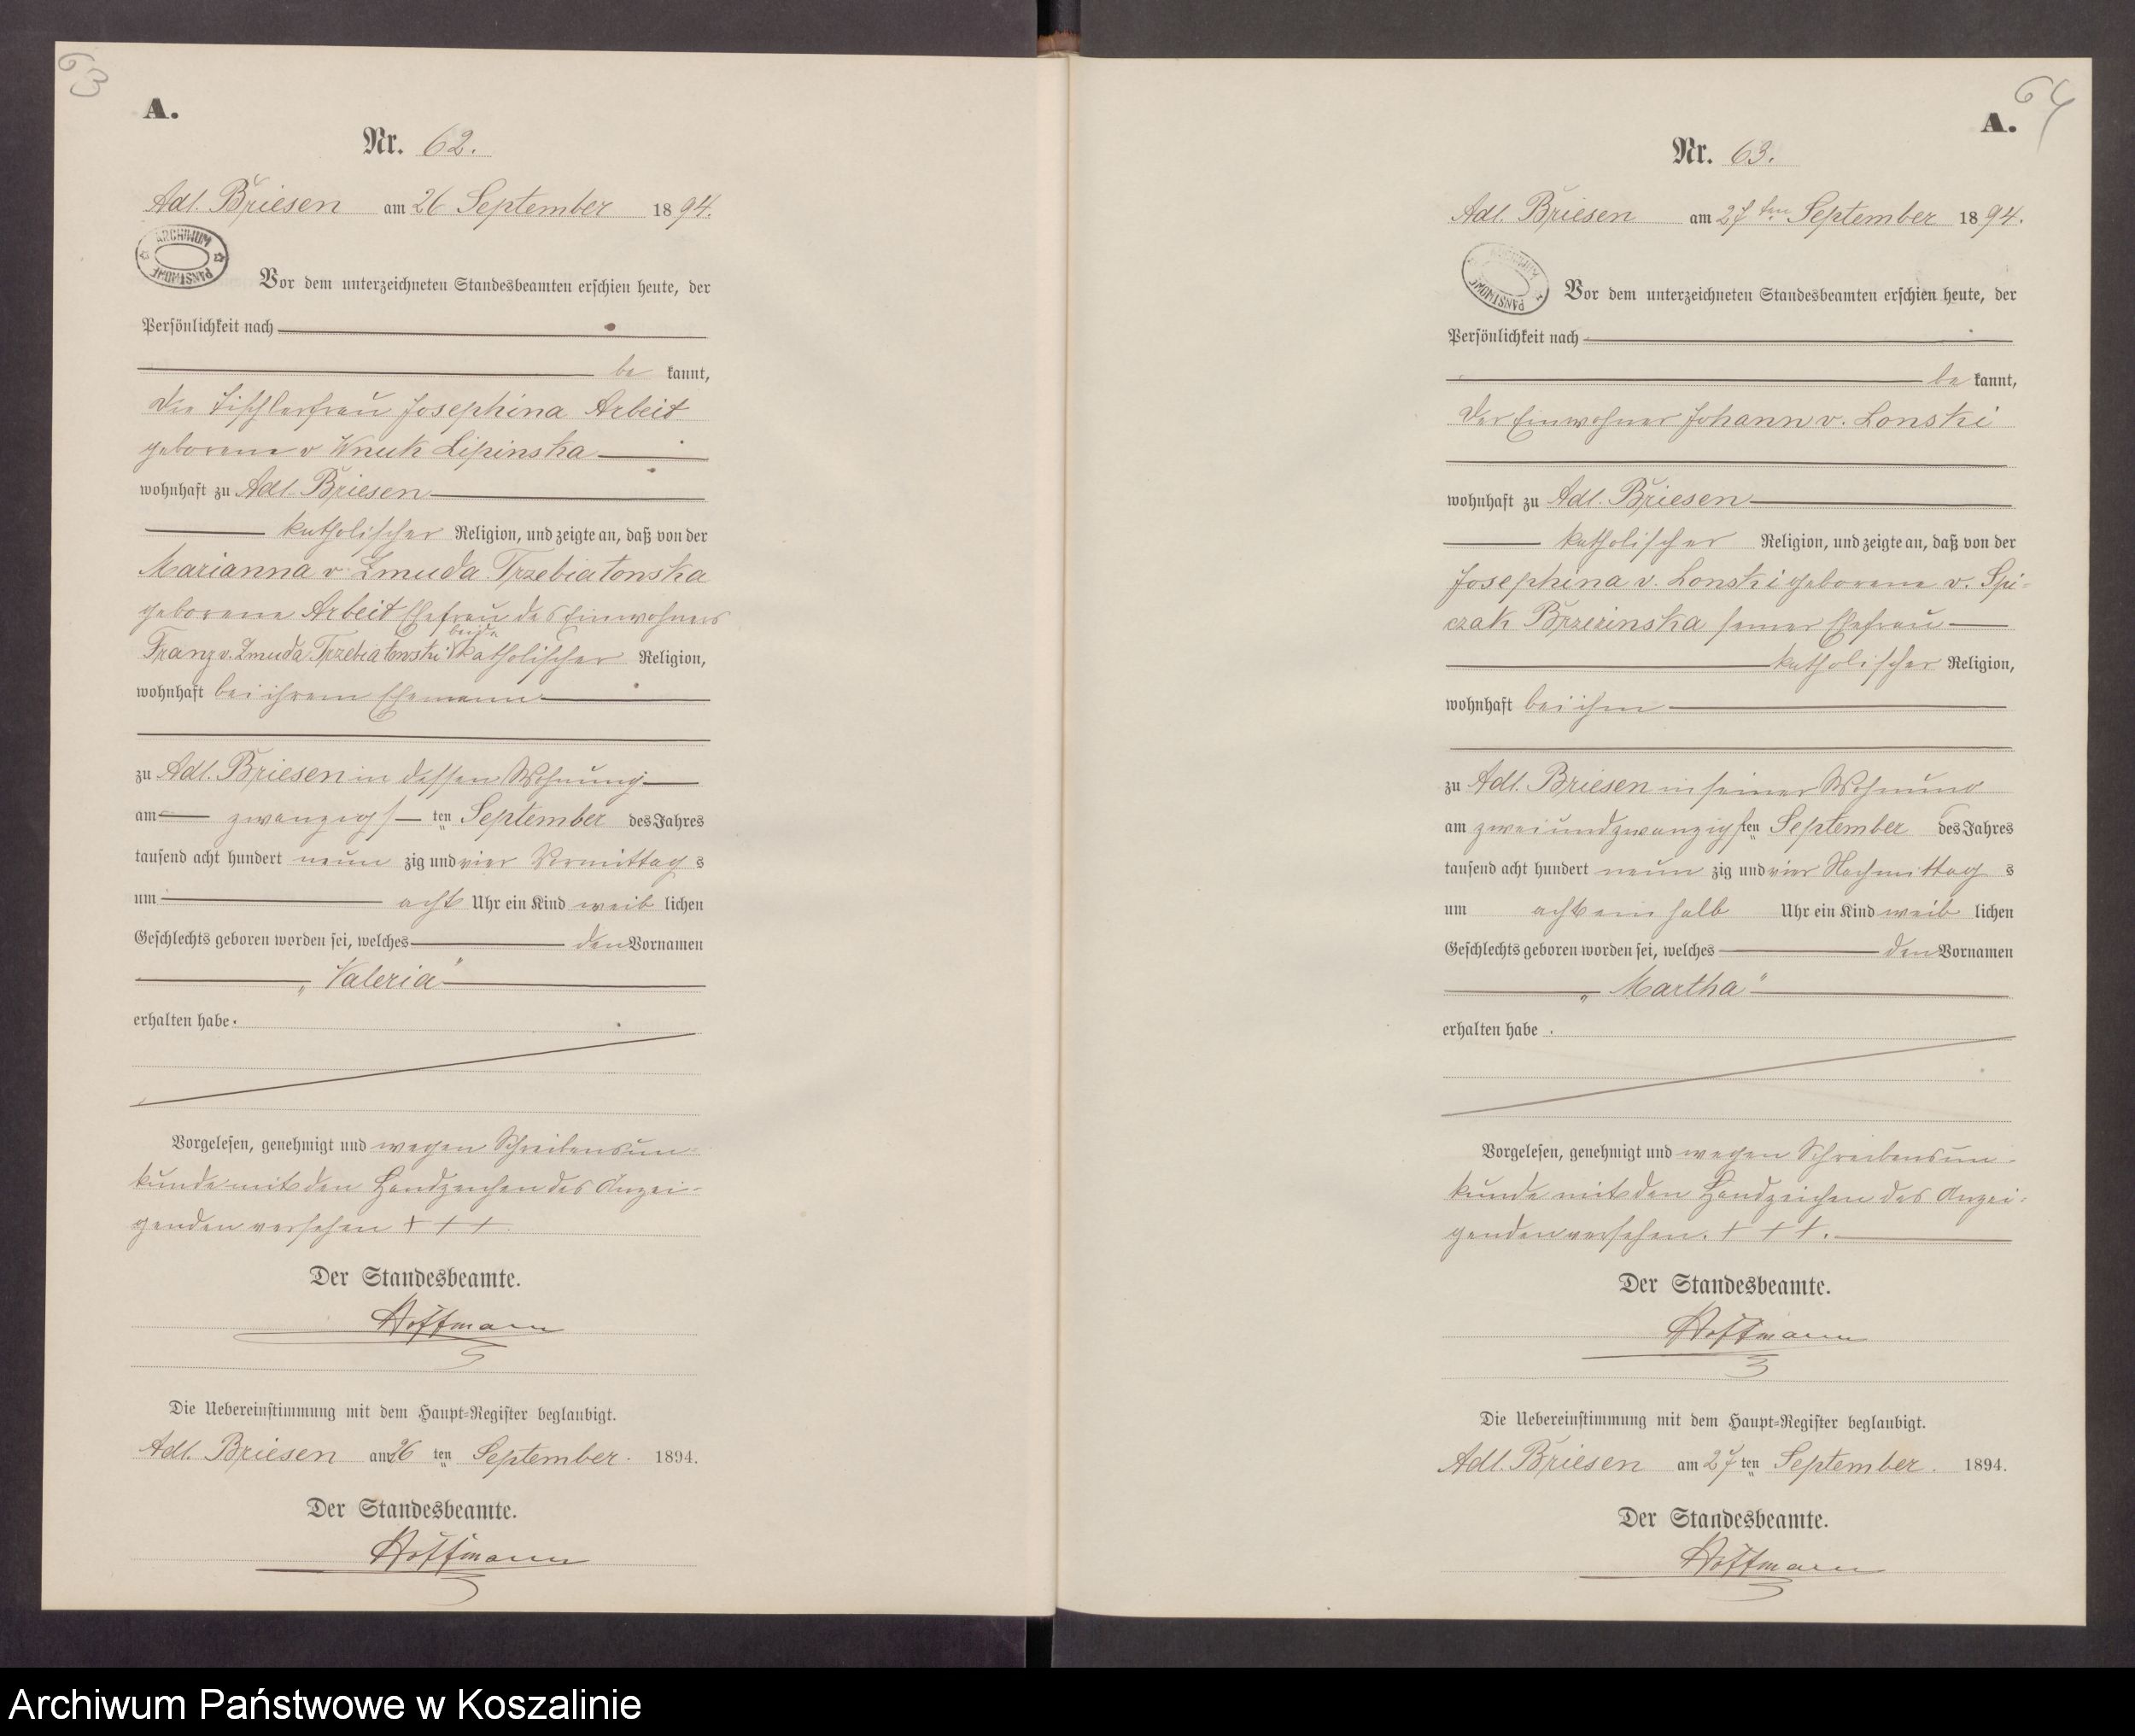 63
A.
Nr. 62.
Adl. Briesen am 26 September 1894.
ARCHIWUM PAŃSTWOWE
Vor dem unterzeichneten Standesbeamten erschien heute, der
Persönlichkeit nach
be kannt,
die Tischlerfrau Josephina Arbeit
geborene v Wnuk Lipinska
wohnhaft zu Adl. Briesen
katholischer Religion, und zeigte an, daß von der
Marianna v. Zmuda Trzebiatowska
geborene Arbeit Ehefrau des Einwohners
beide
Franz v. Zmuda Trzebiatowski katholischer Religion,
wohnhaft bei ihrem Ehemann
zu Adl. Briesen in dessen Wohnung
am zwanzigs ten September des Jahres
tausend acht hundert neun zig und vier Vormittag s
um acht Uhr ein Kind weib lichen
Geschlechts geboren worden sei, welches den Vornamen
„Valeria"
erhalten habe.
Vorgelesen, genehmigt und wegen Schreibensun-
kunde mit den Handzeichen des Anzei-
genden versehen + + +
Der Standesbeamte.
Hoffmann
Die Uebereinstimmung mit dem Haupt-Register beglaubigt.
Adl. Briesen am 26 ten September. 1894.
Der Standesbeamte.
Hoffmann
64
A.
Nr. 63.
Adl. Briesen am 27ten September 1894.
ARCHIWUM PAŃSTWOWE
Vor dem unterzeichneten Standesbeamten erschien heute, der
Persönlichkeit nach
be kannt,
der Einwohner Johann v. Lonski
wohnhaft zu Adl. Briesen
katholischer Religion, und zeigte an, daß von der
Josephina v. Lonski geborene v. Spi-
czak Brzezinska seiner Ehefrau
katholischer Religion,
wohnhaft bei ihm
zu Adl. Briesen in seiner Wohnung
am zweiundzwanzigs ten September des Jahres
tausend acht hundert neun zig und vier Nachmittag s
um acht ein halb Uhr ein Kind weib lichen
Geschlechts geboren worden sei, welches den Vornamen
„Martha"
erhalten habe.
Vorgelesen, genehmigt und wegen Schreibensun-
kunde mit den Handzeichen des Anzei-
genden versehen. + + +.
Der Standesbeamte.
Hoffmann
Die Uebereinstimmung mit dem Haupt-Register beglaubigt.
Adl. Briesen am 27 ten September. 1894.
Der Standesbeamte.
Hoffmann
Archiwum Państwowe w Koszalinie